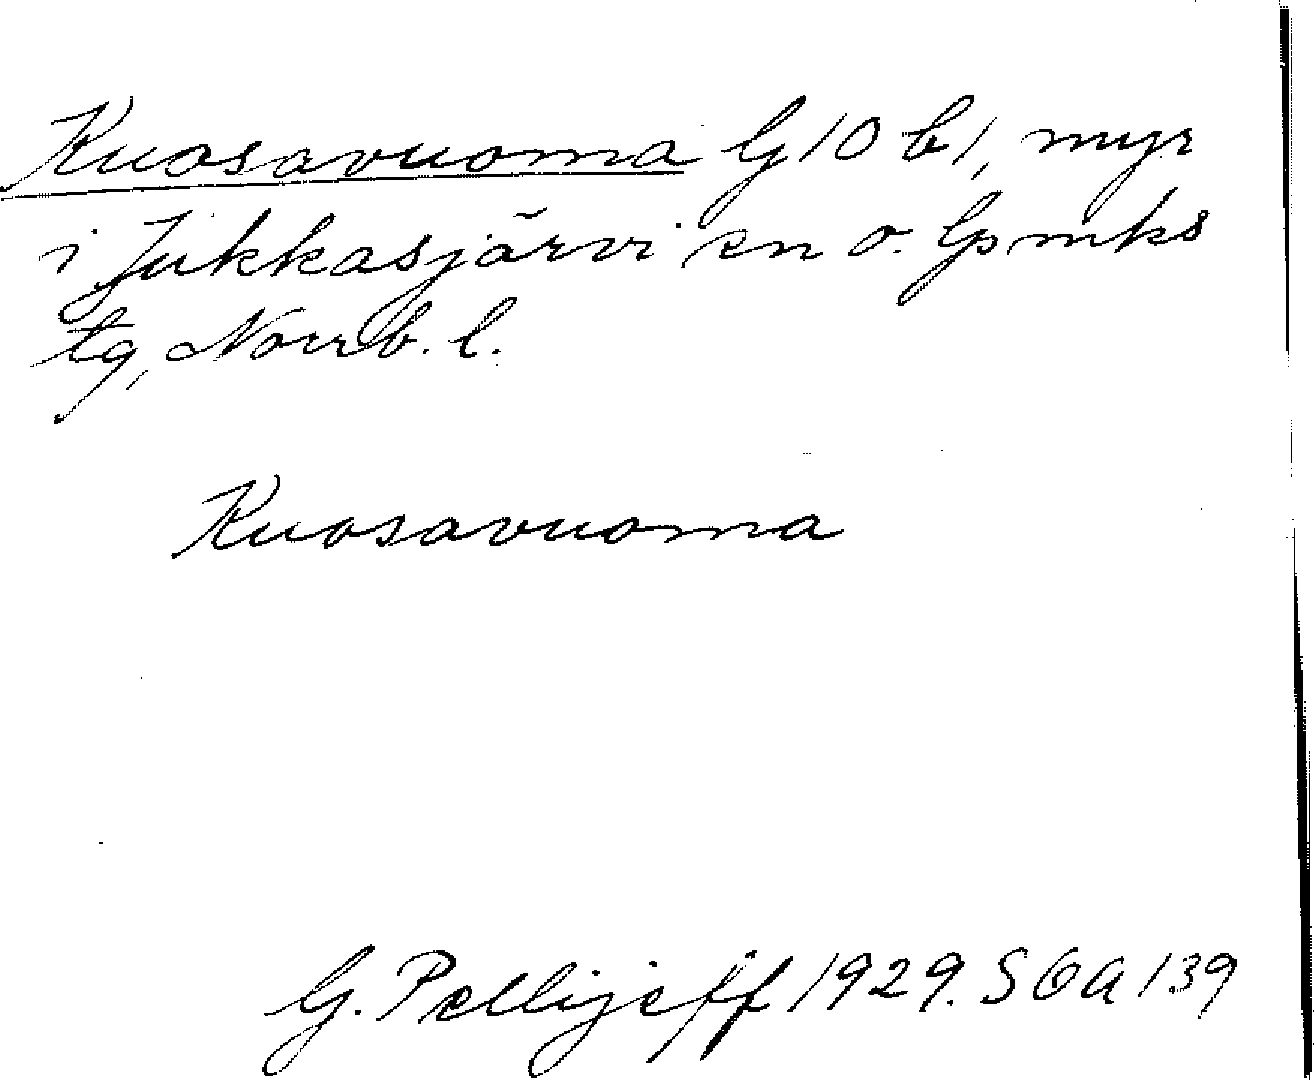 Kuosavuoma G 10 b 1, myr
i Jukkasjärvi sn o. lpmks
tg, Norrb. l.
Kuosavuoma
G. Pellijeff 1929. SOA 139